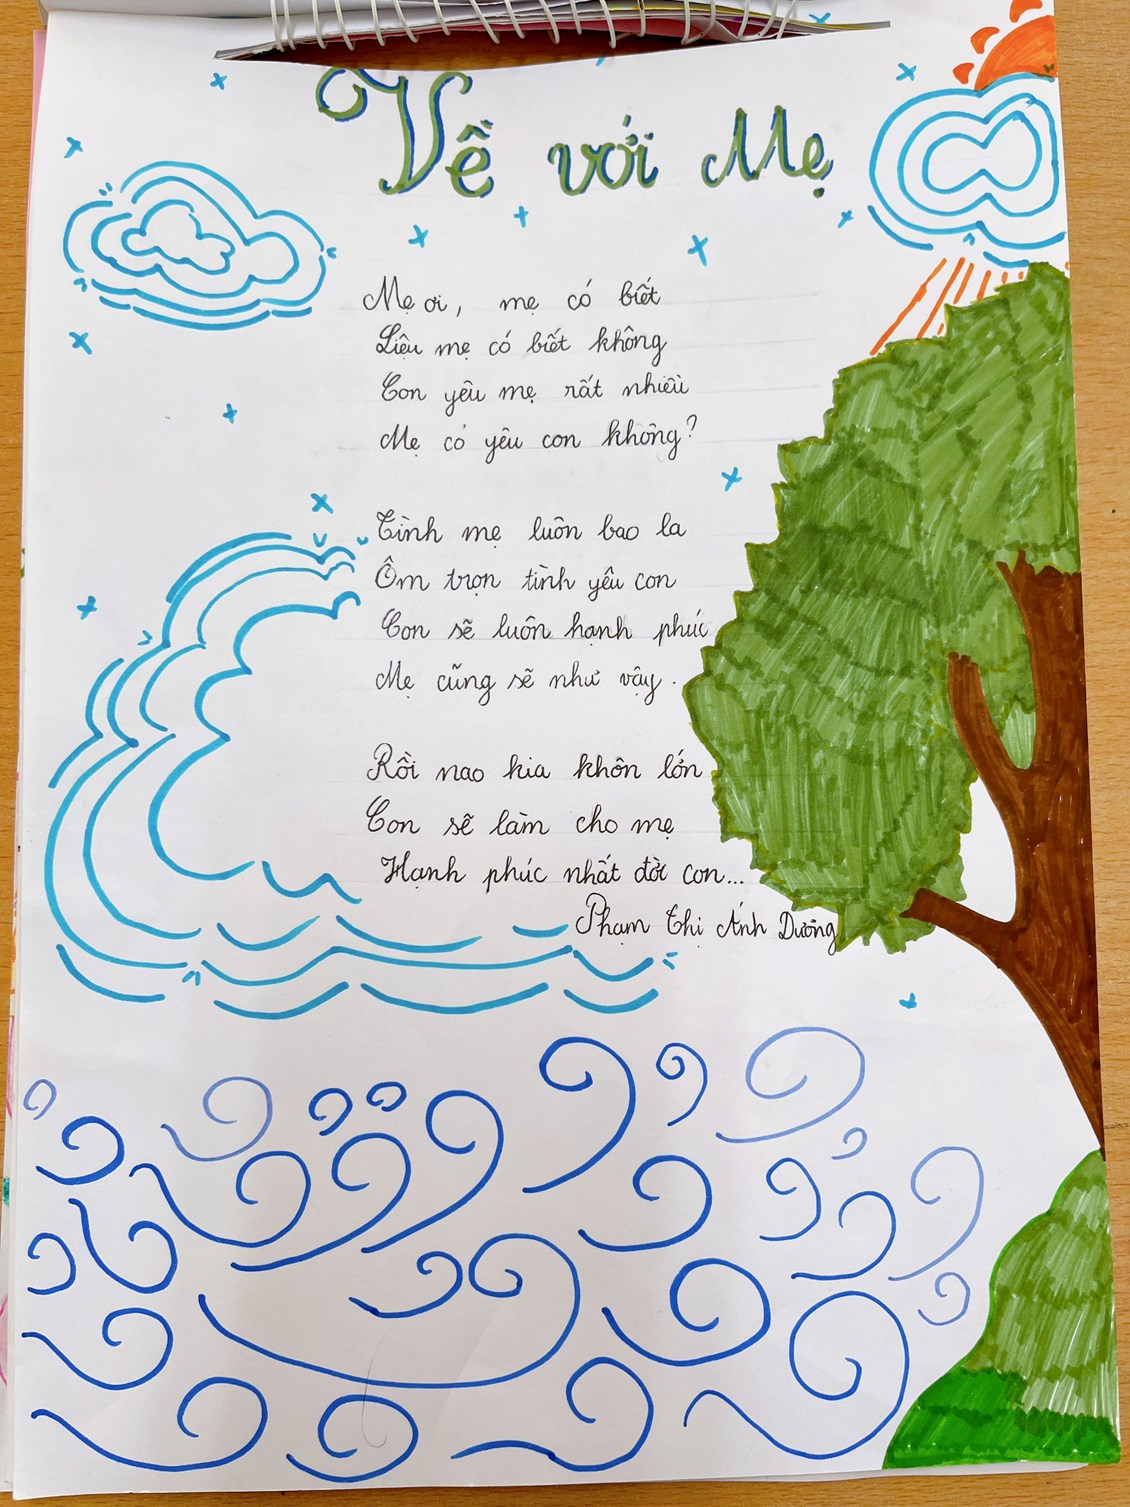 Về với Mẹ
Mẹ ơi, mẹ có biết
Liệu mẹ có biết không
Con yêu mẹ rất nhiều
Mẹ có yêu con không?
Tình mẹ luôn bao la
Ôm trọn tình yêu con
Con sẽ luôn hạnh phúc
Mẹ cũng sẽ như vậy.
Rồi nao kia khôn lớn
Con sẽ làm cho mẹ
Hạnh phúc nhất đời con...
Phạm Thị Ánh Dương